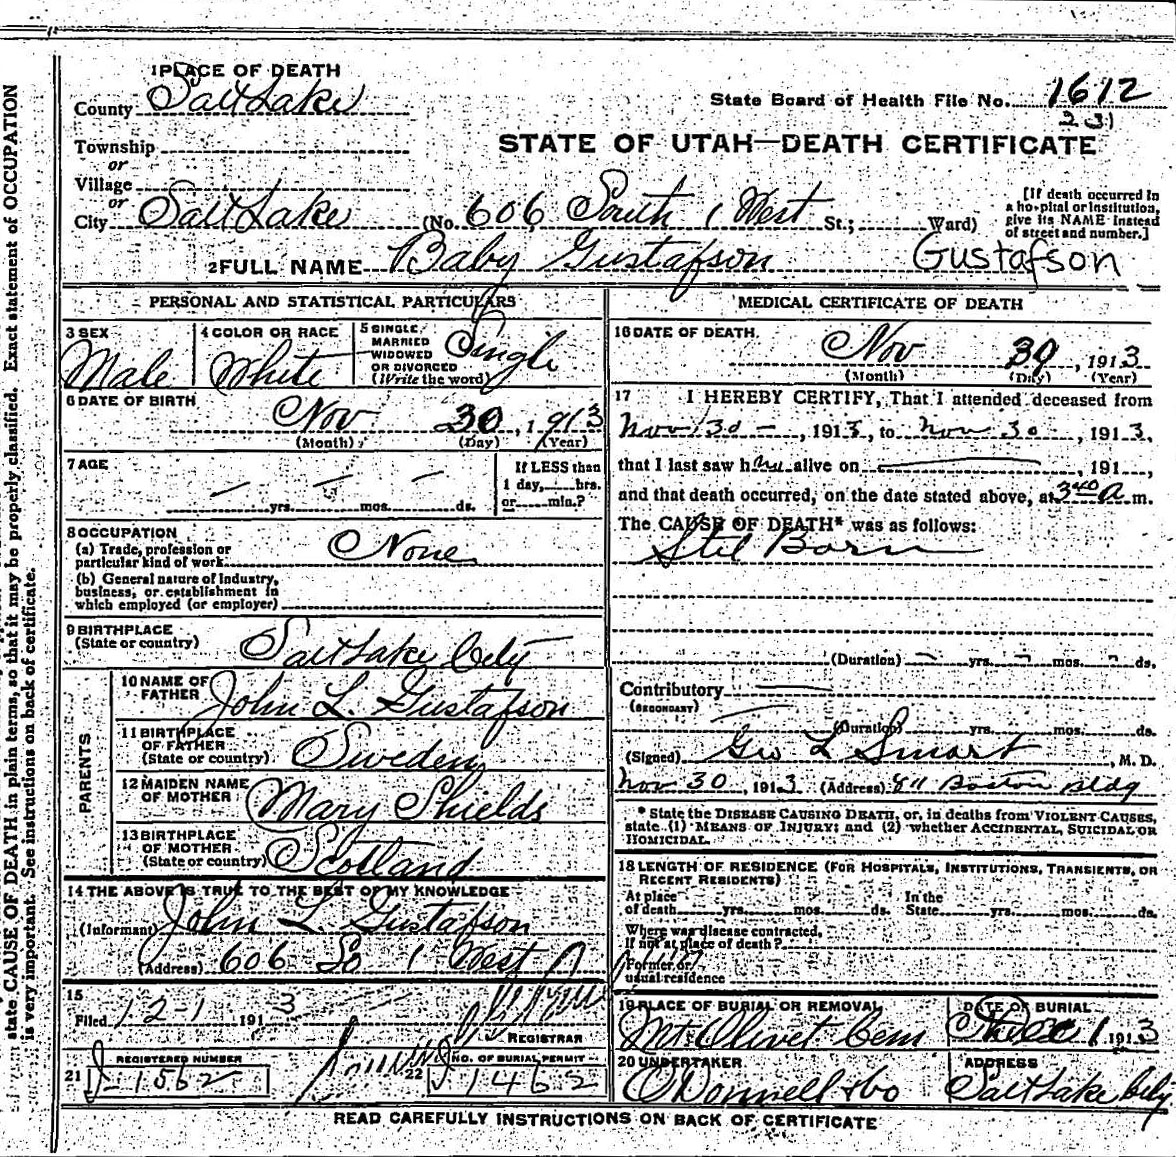 state CAUSE OF DEATH in plain terms, so that it may be properly classified. Exact statement of OCCUPATION
is very important. See instructions on back of certificate.
1 PLACE OF DEATH
County Salt Lake
State Board of Health File No. 1612
231
Township
or
Village
or
STATE OF UTAH—DEATH CERTIFICATE
City Salt Lake (No. 606 South 1 West St.; Ward)
[If death occurred in
a hospital or institution,
give its NAME instead
of street and number.]
2 FULL NAME Baby Gustafson Gustafson
PERSONAL AND STATISTICAL PARTICULARS
3 SEX
Male
4 COLOR OR RACE
White
5 SINGLE,
MARRIED
WIDOWED
OR DIVORCED
(Write the word)
Single
6 DATE OF BIRTH
Nov 30, 1913
(Month) (Day) (Year)
7 AGE
— yrs. — mos. — ds.
If LESS than
1 day, hrs.
or min.?
8 OCCUPATION
(a) Trade, profession or
particular kind of work None
(b) General nature of Industry,
business, or establishment in
which employed (or employer)
9 BIRTHPLACE
(State or country) Salt Lake City
PARENTS
10 NAME OF
FATHER John L. Gustafson
11 BIRTHPLACE
OF FATHER
(State or country) Sweden
12 MAIDEN NAME
OF MOTHER Mary Shields
13 BIRTHPLACE
OF MOTHER
(State or country) Scotland
14 THE ABOVE IS TRUE TO THE BEST OF MY KNOWLEDGE
(Informant) John L Gustafson
(Address) 606 So 1 West
15
Filed 12-1 1913
REGISTRAR
REGISTERED NUMBER
21 J-1562
NO. OF BURIAL PERMIT
22 J 1462
MEDICAL CERTIFICATE OF DEATH
16 DATE OF DEATH
Nov 30, 1913
(Month) (Day) (Year)
17 I HEREBY CERTIFY, That I attended deceased from
Nov 30 —, 1913, to Nov 30, 1913,
that I last saw h alive on —, 191 ,
and that death occurred, on the date stated above, at 3 40 A m.
The CAUSE OF DEATH* was as follows:
Stil Born
(Duration) — yrs. — mos. — ds.
Contributory —
(SECONDARY)
(Duration) yrs. mos. ds.
(Signed) Geo L Smart, M. D.
Nov 30, 1913 (Address) 811 Boston Bldg
* State the DISEASE CAUSING DEATH, or, in deaths from VIOLENT CAUSES,
state (1) MEANS OF INJURY; and (2) whether ACCIDENTAL, SUICIDAL OR
HOMICIDAL.
18 LENGTH OF RESIDENCE (FOR HOSPITALS, INSTITUTIONS, TRANSIENTS, OR
RECENT RESIDENTS)
At place
of death yrs. mos. ds.
In the
State yrs. mos. ds.
Where was disease contracted,
If not at place of death?
Former or
usual residence
19 PLACE OF BURIAL OR REMOVAL
Mt Olivet Cem
DATE OF BURIAL
1 1913
20 UNDERTAKER
O'Donnell & Co
ADDRESS
Salt Lake City
READ CAREFULLY INSTRUCTIONS ON BACK OF CERTIFICATE